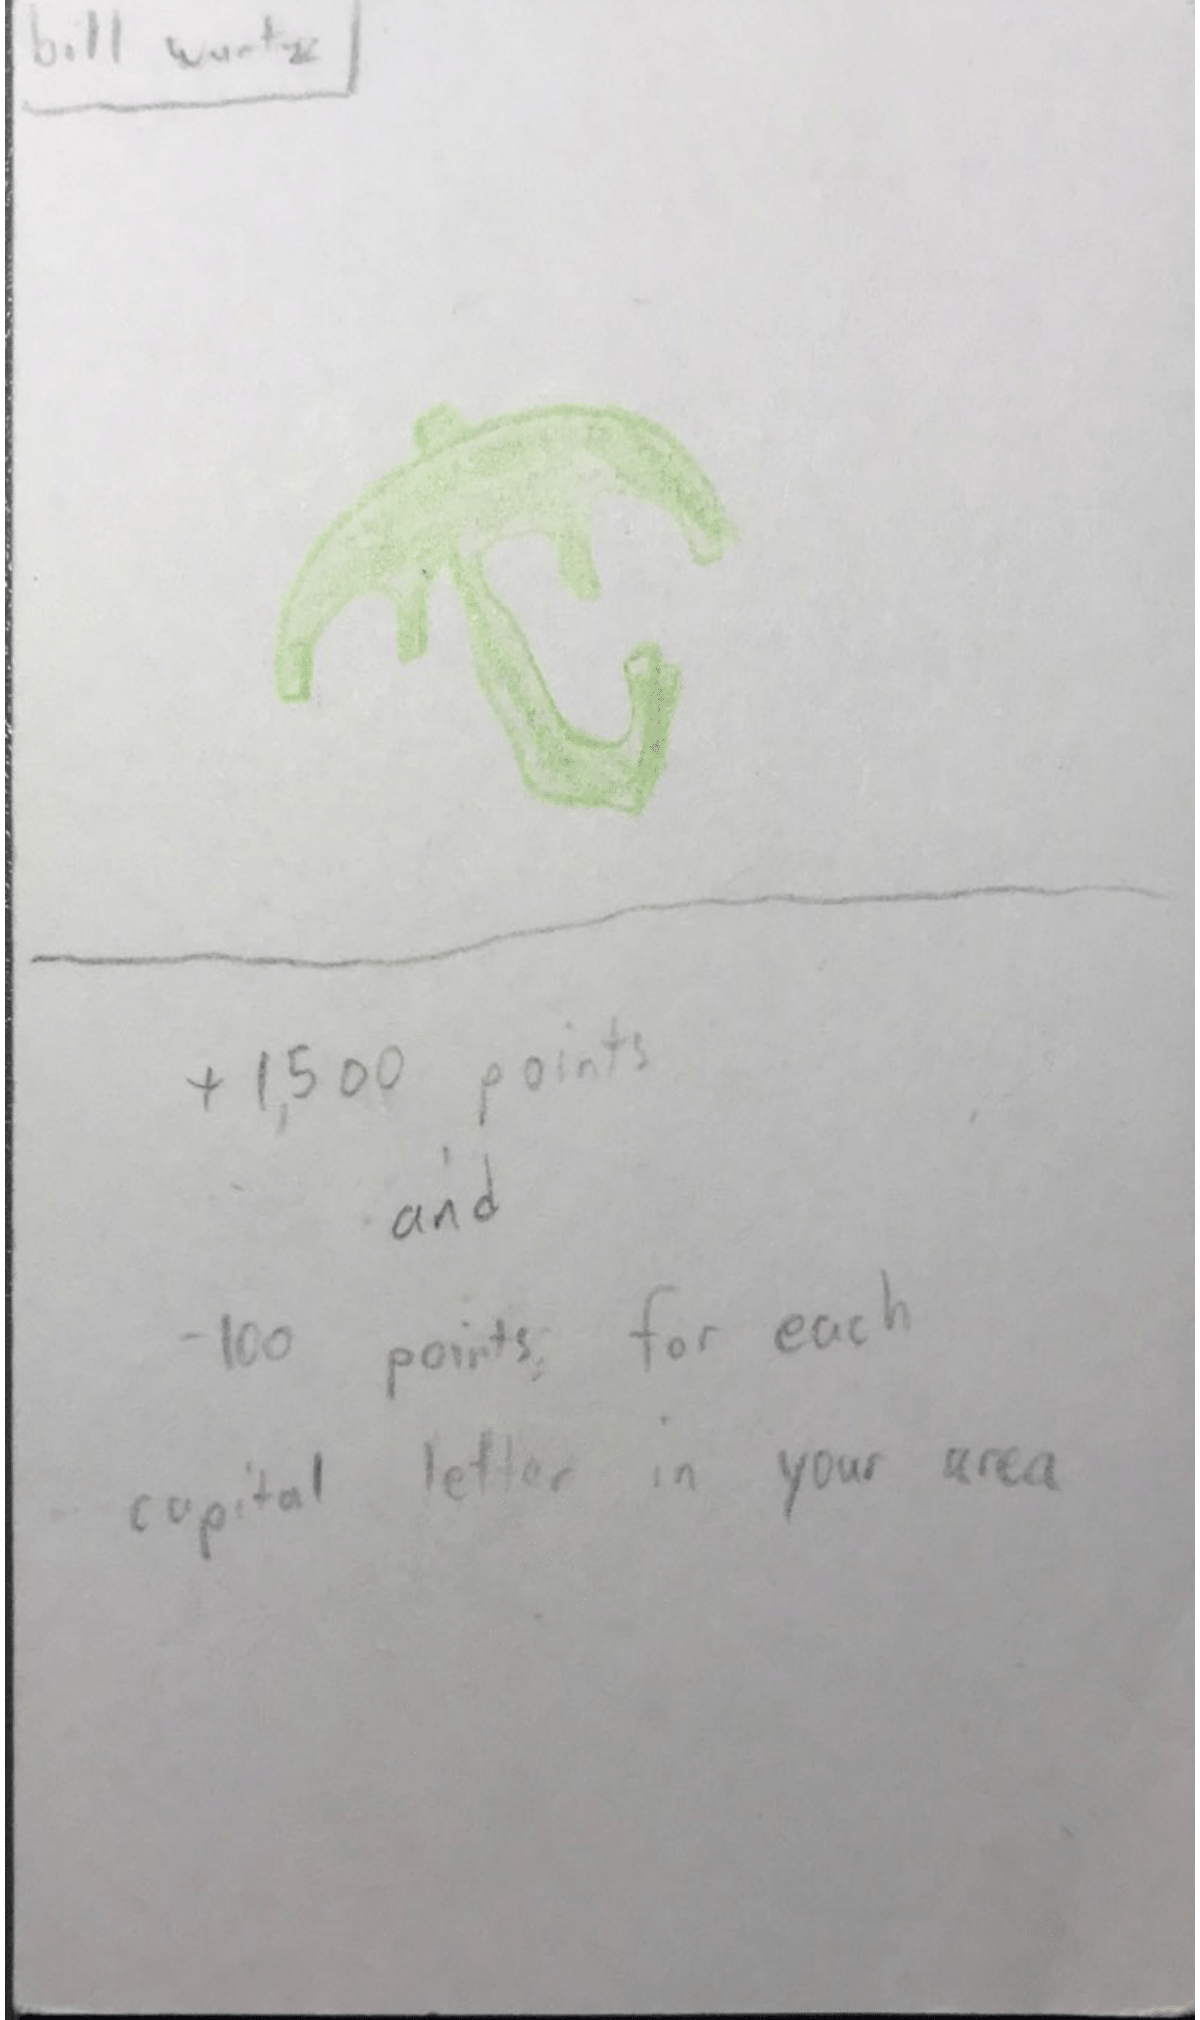 bill wurtz
+1,500 points
and
-100 points for each
capital letter in your area